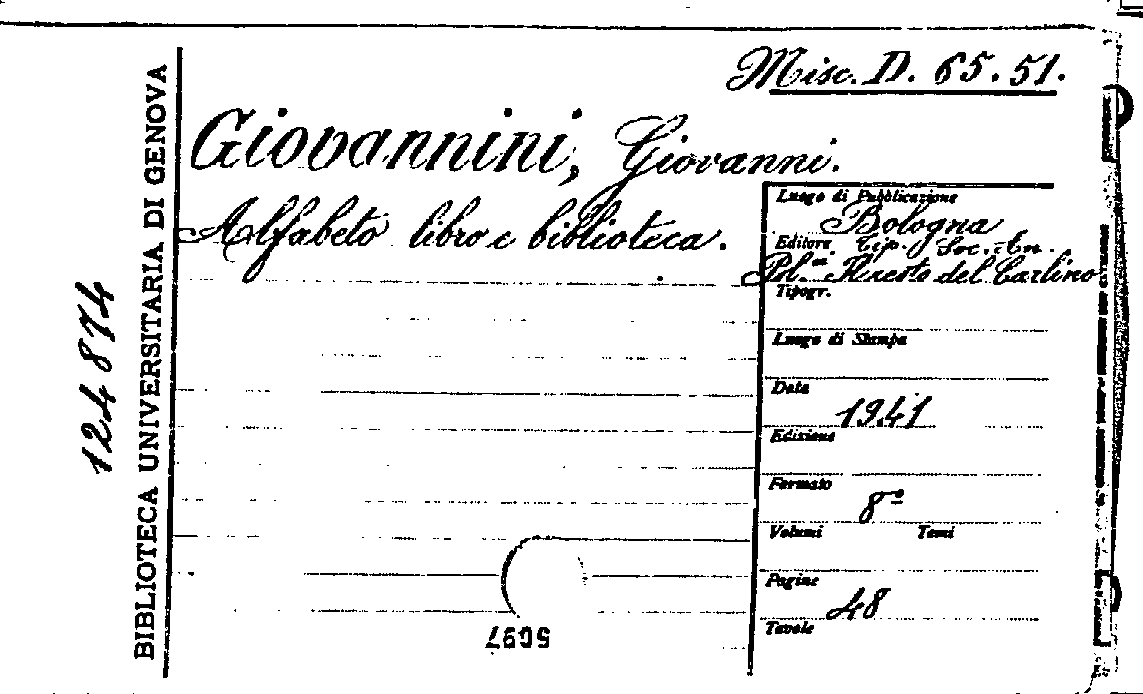 Misc. D. 65.51.
Giovannini, Giovanni.
Alfabeto libro e biblioteca.
Luogo di Pubblicazione
Bologna
Editore Tip. Soc. An.
Pol.ⁱ Resto del Carlino
Tipogr.
Luogo di Stampa
Data
1941
Edizione
Formato
8º
Volumi Tomi
Pagine
48
Tavole
BIBLIOTECA UNIVERSITARIA DI GENOVA
124874
5097